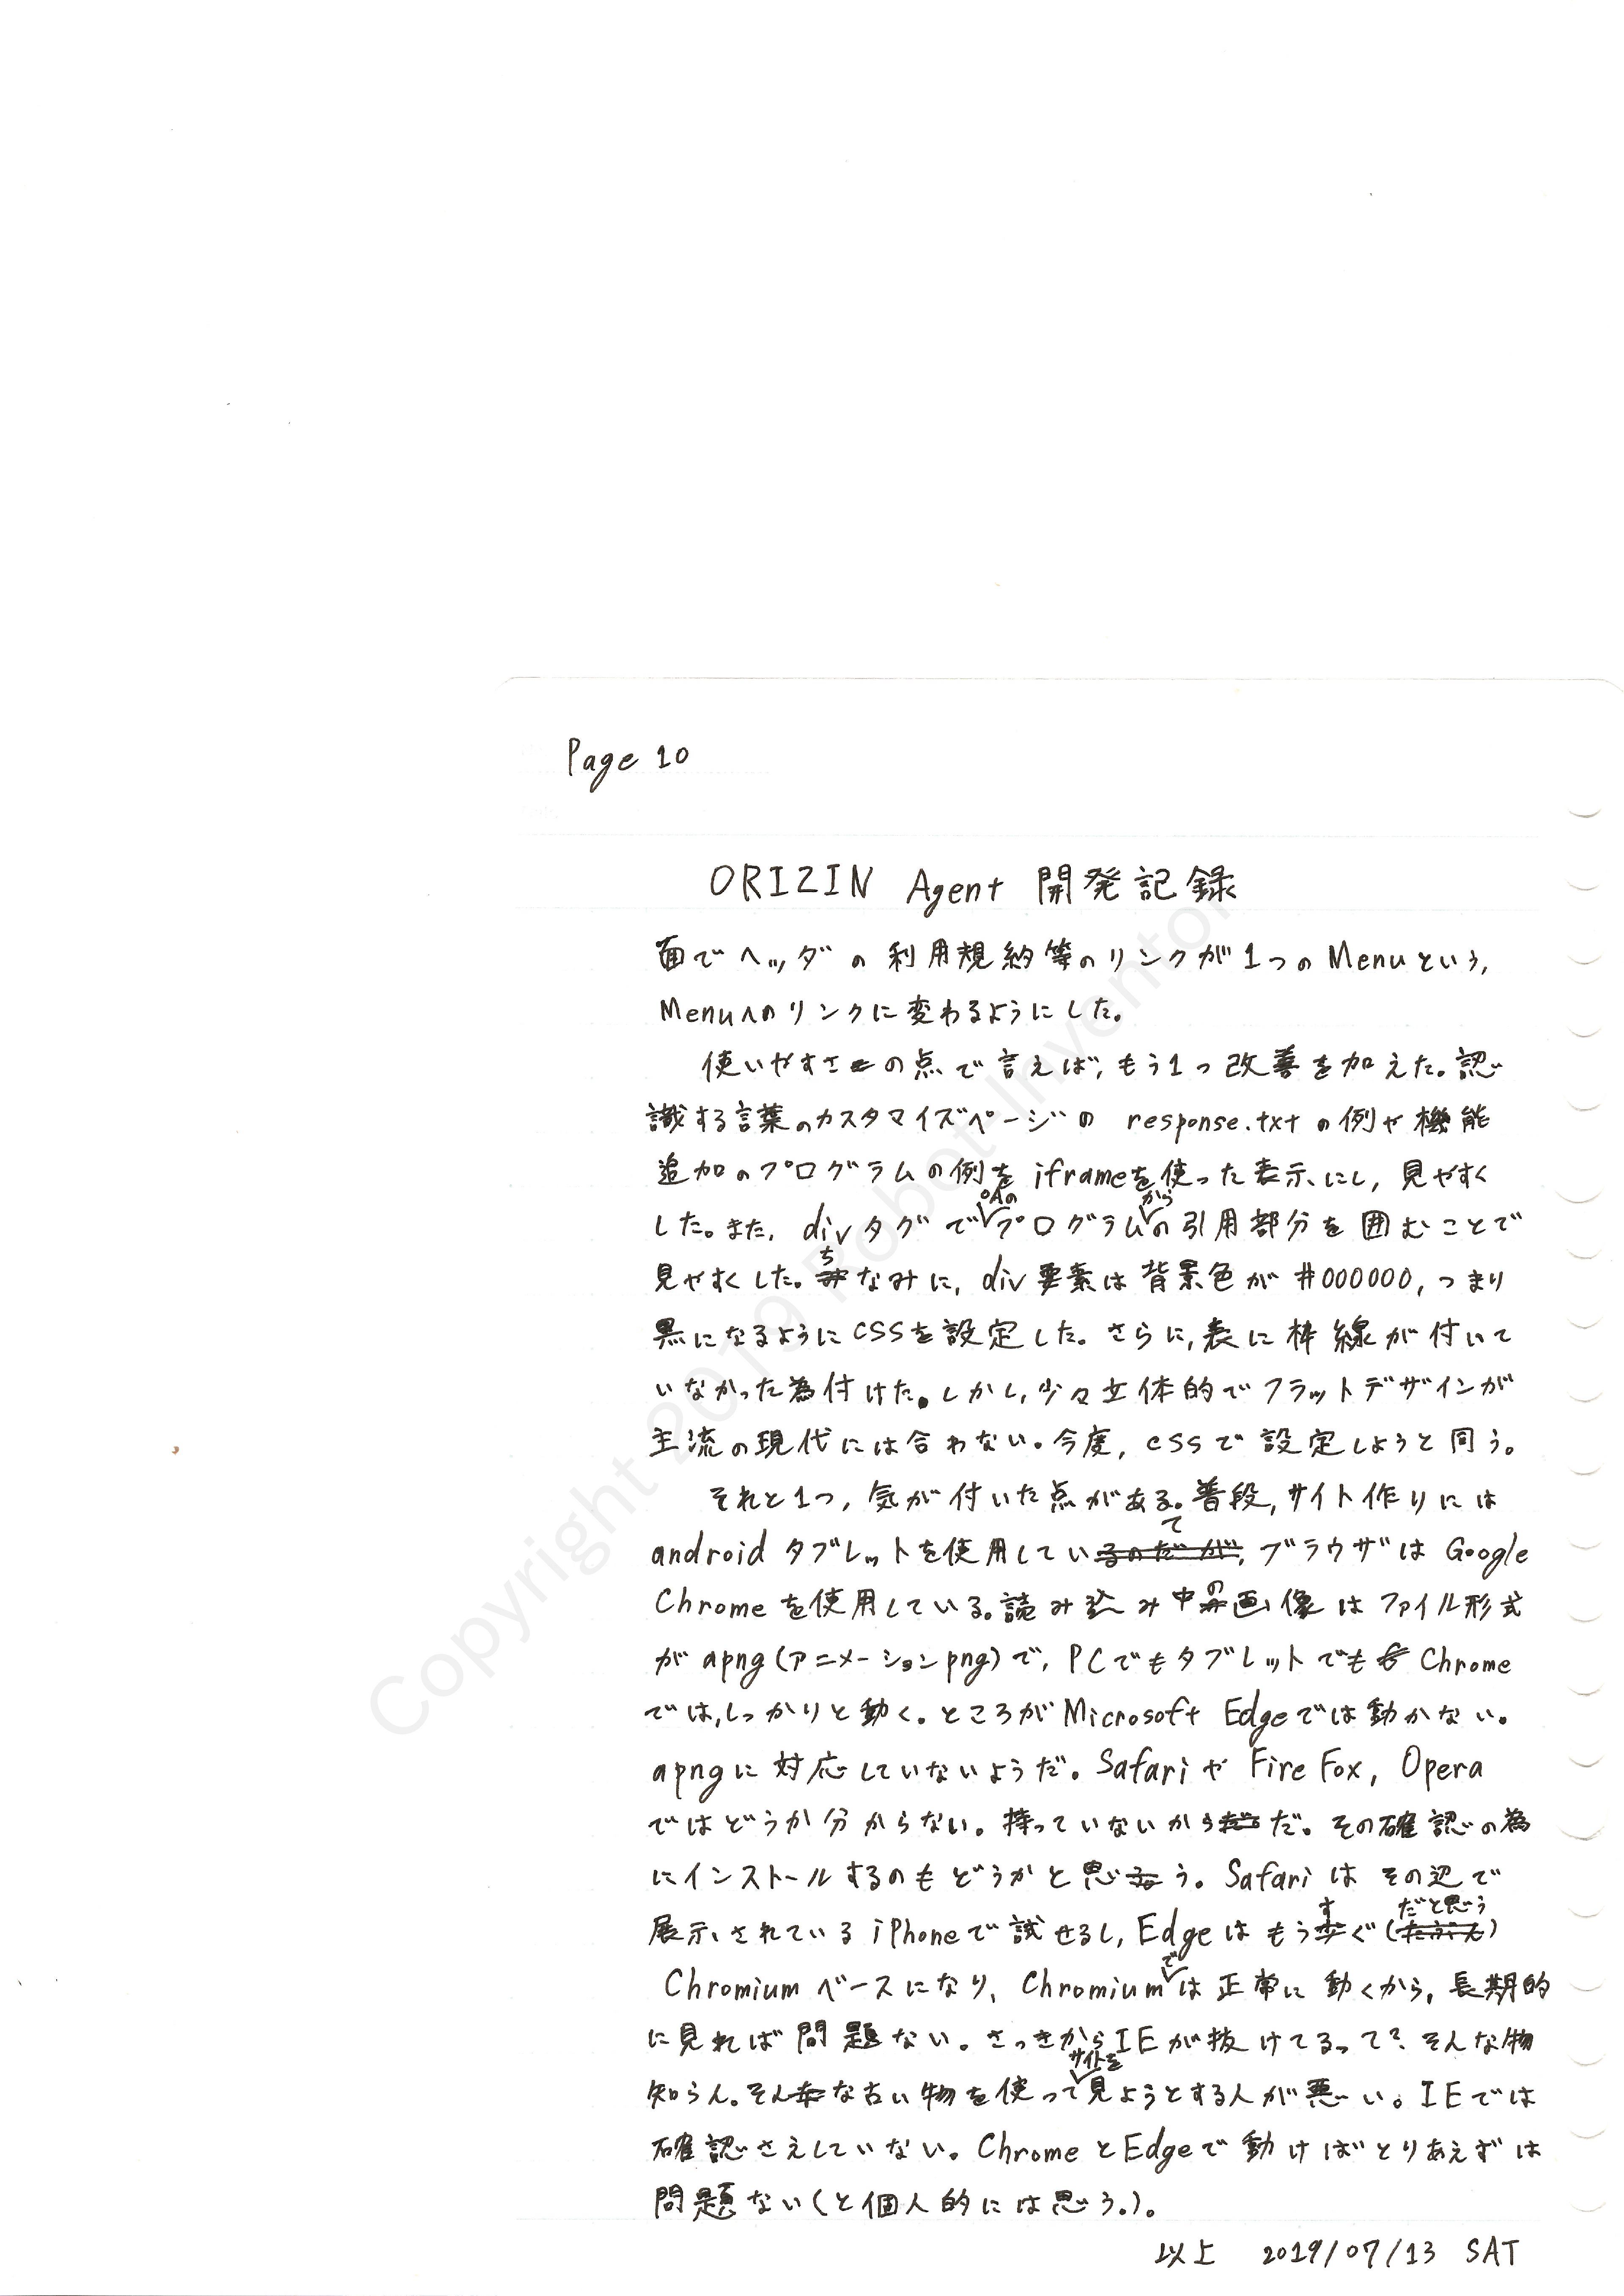 Page 10
ORIZIN Agent 開発記録
面でヘッダの利用規約等のリンクが1つのMenuという,
Menuへのリンクに変わるようにした。
使いやすさの点で言えば,もう1つ改善を加えた。認
識する言葉のカスタマイズページの response.txtの例や機能
追加のプログラムの例を iframeを使った表示にし,見やすく
した。また, divタグでOAのプログラムからの引用部分を囲むことで
見やすくした。ちなみに, div要素は背景色が #000000,つまり
黒になるようにCSSを設定した。さらに,表に枠線が付いて
いなかった為付けた。しかし,少々立体的でフラットデザインが
主流の現代には合わない。今度, cssで設定しようと同う。
それと1つ,気が付いた点がある。普段,サイト作りには
androidタブレットを使用していて,ブラウザは Google
Chromeを使用している。読み込み中の画像はファイル形式
がapng(アニメーションpng)で, PCでもタブレットでも Chrome
では,しっかりと動く。ところがMicrosoft Edgeでは動かない。
apngに対応していないようだ。Safariや FireFox, Opera
ではどうか分からない。持っていないからだ。その確認の為
にインストールするのもどうかと思う。Safariはその辺で
展示されている iPhoneで試せるし, Edgeはもうすぐ(だと思う)
Chromiumベースになり, Chromiumでは正常に動くから,長期的
に見れば問題ない。さっきからIEが抜けてるって?そんな物
知らん。そんな古い物を使ってサイトを見ようとする人が悪い。IEでは
確認さえしていない。ChromeとEdgeで動けばとりあえずは
問題ない(と個人的には思う。)。
以上 2019/07/13 SAT
Copyright 2019 Robot-Inventor